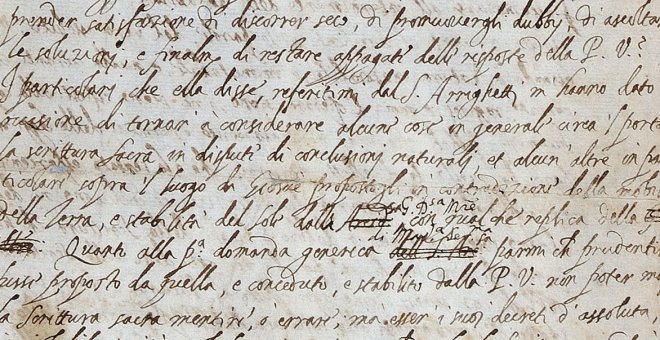 prender satisfazione di discorrer seco, di promuovergli dubbj, di ascolta
le soluzioni, e finalm. di restare appagati delle risposte della P. V.
I particolari che ella disse, referitimi dal S. Arrighetti m hanno dato
occasione di tornar à considerare alcune cose in generale circa 'l porta
la scrittura sacra in dispute di conclusioni naturali, et alcun' altre in pa
ticolari sopra 'l luogo di Giosuè propostogli in contradizione della mobi
della Terra, e stabilità del Sole dalla
con qualche replica della
Quanto alla p.ª domanda generica parmi ch prudentis
fusse proposto da quella, e conceduto, e stabilito dalla P. V. non poter ma
la scrittura sacra mentire, ò errare, mà esser i suoi decreti d'assoluta,